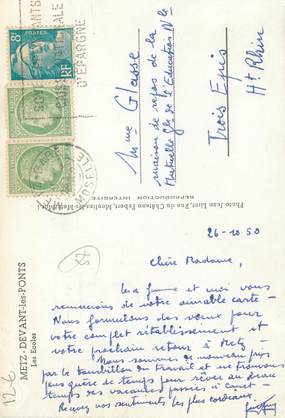 26-10-50
Chère Madame,
Ma femme et moi vous
remercions de votre aimable carte -
Nous formulons des vœux pour
votre complet rétablissement et
votre prochain retour à Metz -
Nous sommes de nouveau pris
par le tourbillon du travail et ne trouvons
plus guère de temps pour rêver au beau
temps des vacances passées à
Reçevez nos sentiments les plus cordiaux.
Mme Glasse
maison de repos de la
Mutuelle Gle de l'Education Nle
Trois Epis
Ht Rhin
8F
POSTES
RF
D'EPARGNE
MOSELLE
Photo Jean Livet, Rue du Château Fabert, Moulins-lès-Metz
REPRODUCTION INTERDITE
METZ-DEVANT-les-PONTS
Les Ecoles
12 €